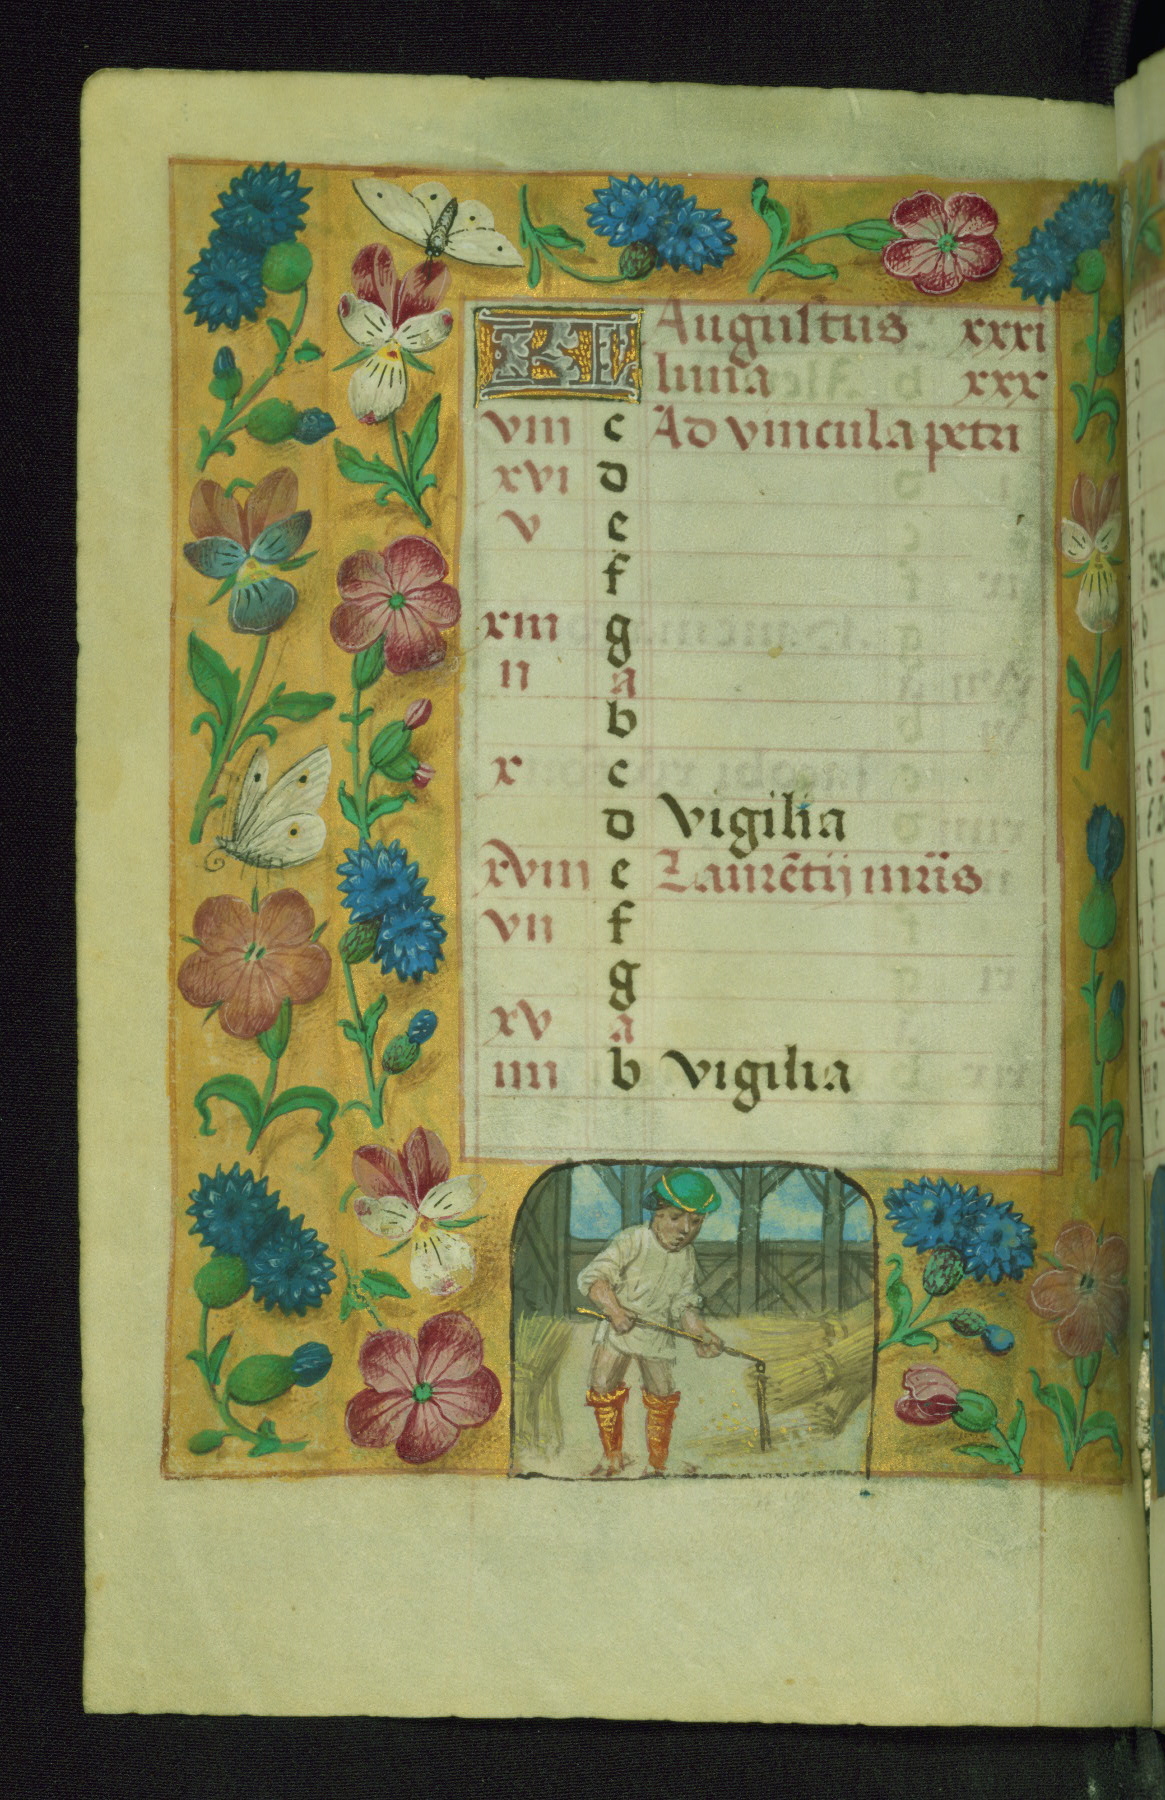 KL Augustus xxxi
luna xxx
viii c Ad vincula petri
xvi d
v e
f
xiii g
ii a
b
x c
d vigilia
xviii e Laurētij mr̄is
vii f
g
xv a
iiii b vigilia